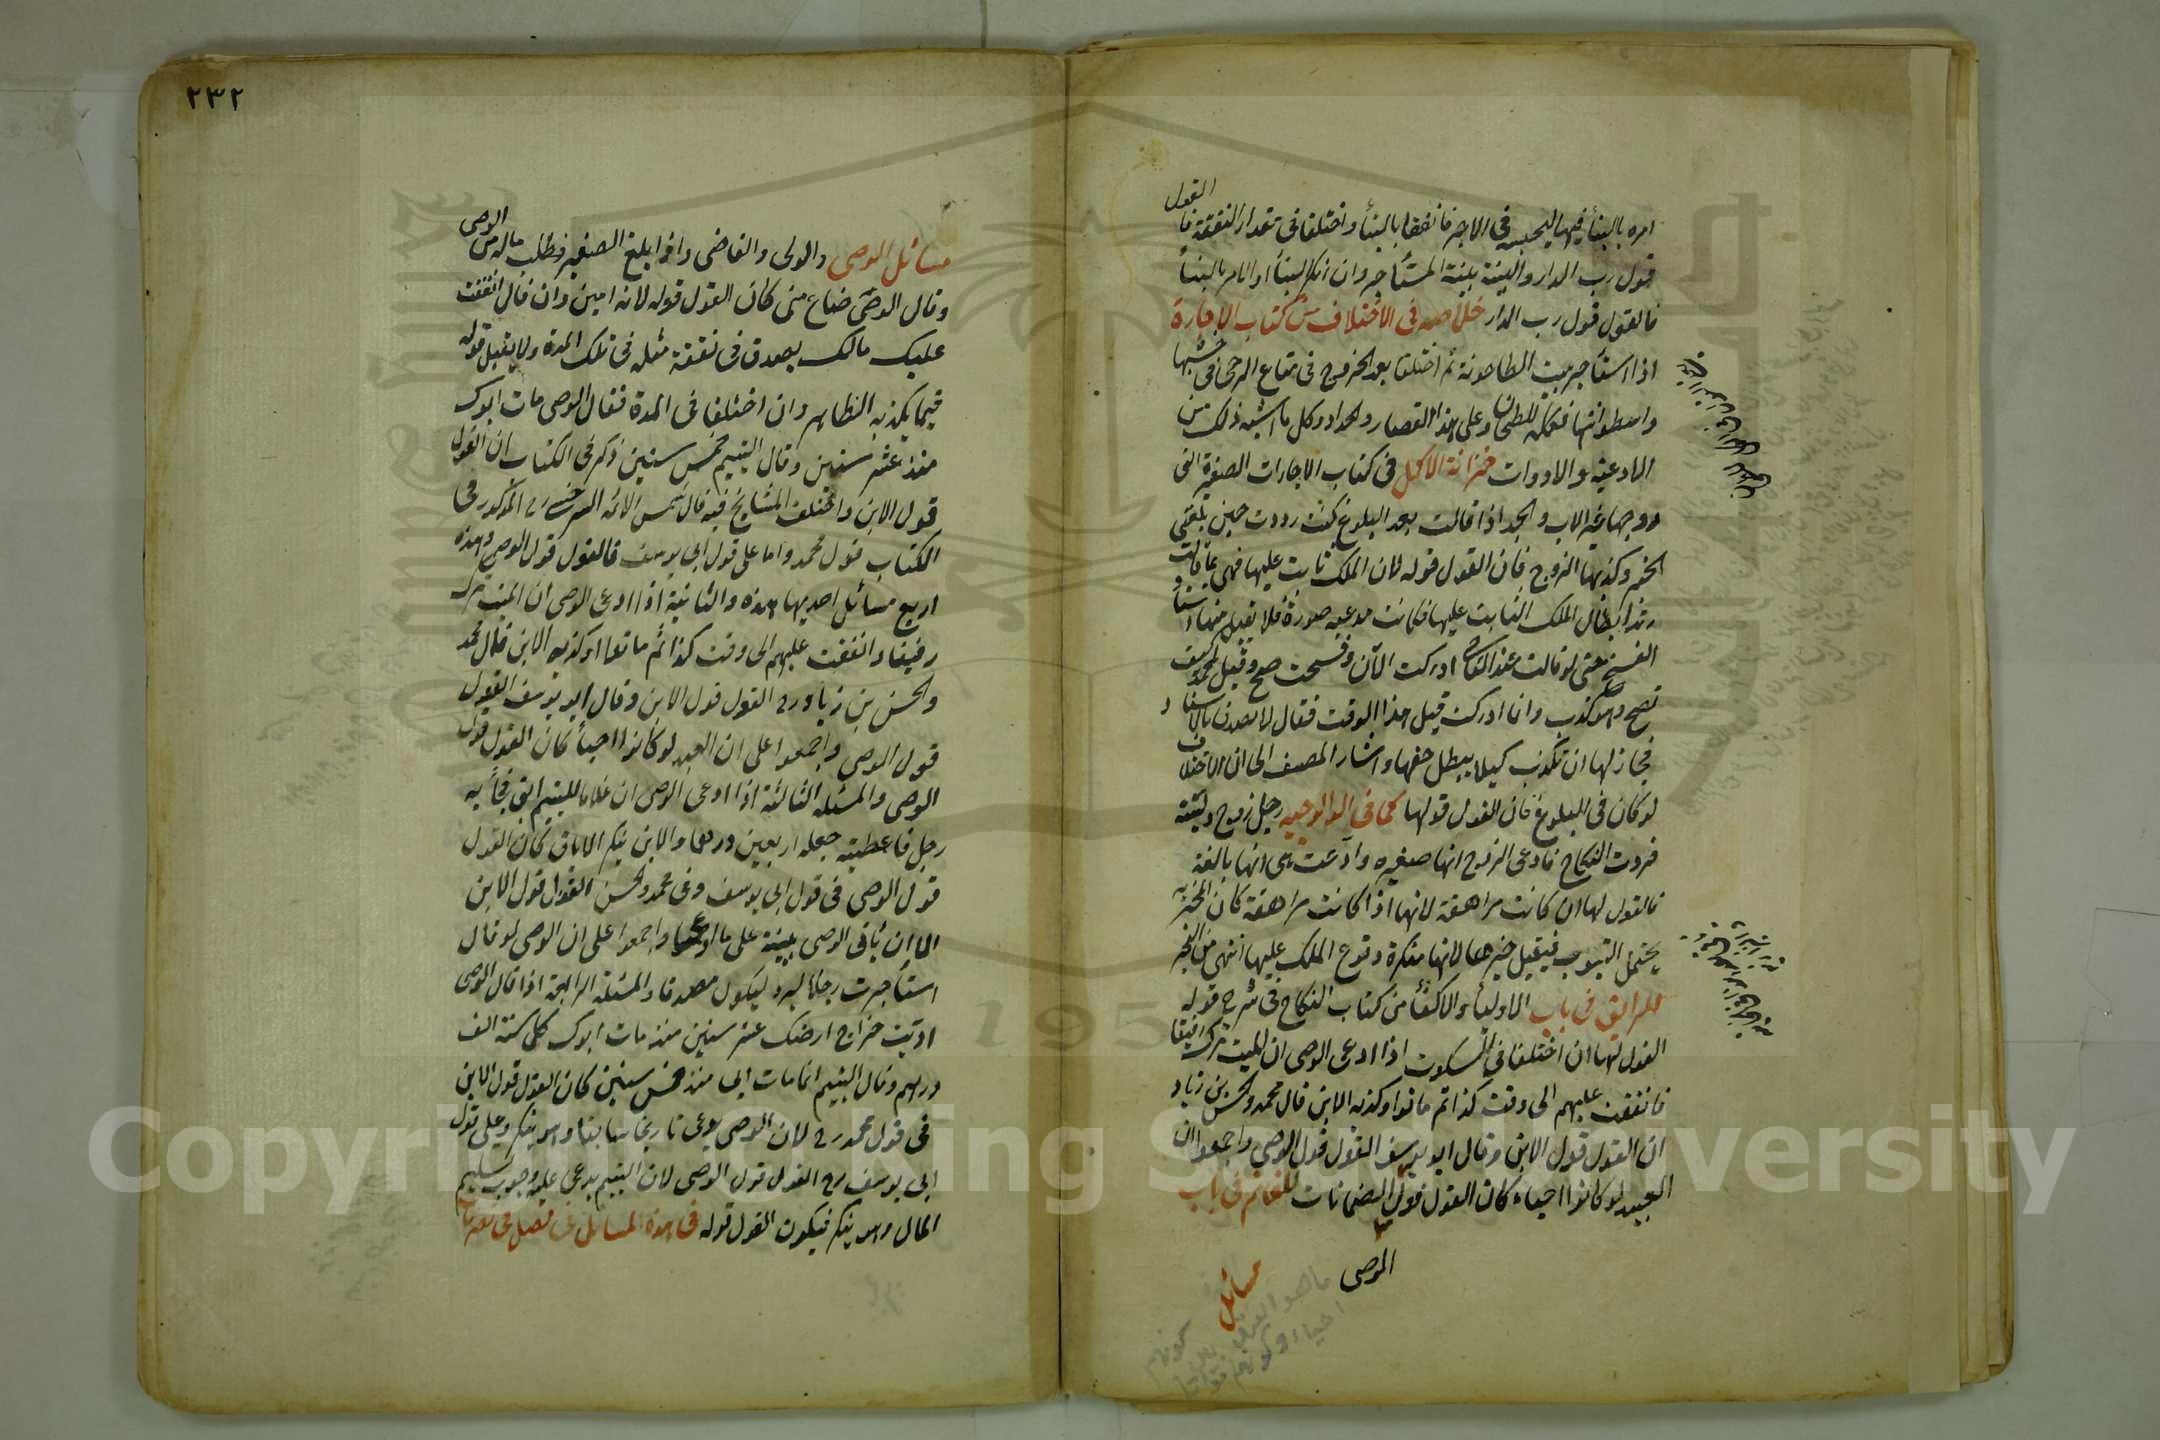 القول
امره بالبنأ فيها ليحسبه في الاجر فاتفقا بالبنأ واختلفا في مقدار النفقة فا
قول رب الدار والبينة بينة المستأجر وان انكر البنأ او الامر بالبنأ
فالقول قول رب الدار خلاصه في الاختلاف من كتاب الاجارة
اذا استأجر بيت الطاحونة ثم اختلفا بعد الخروج في متاع الرحى في خشبها
واسطوانتها فكله للطحان وعلى هذا القصار والحداد وكل ما اشبه ذلك من
الاوعية والادوات خزانة الاكمل في كتاب الاجارات الصغيرة التى
زوجها غير الاب والجد اذا قالت بعد البلوغ كنت رددت حين بلغنى
الخبر وكذبها الزوج فان القول قوله لان الملك ثابت عليها فهى بما قالت
تريد ابطال الملك الثابت عليها فكانت مدعيه صورة فلا تقبل منها اسناد
الفسخ حتى لو قالت عند القاضى ادركت الآن وفسخت صح وقيل لمحمد كيف
تصح وهو كذب وانما ادركت قبل هذا الوقت فقال لا تصدق بالاسناد
فجاز لها ان تكذب كيلا يبطل حقها واشار المصنف الى ان الاختلاف
لو كان في البلوغ فان القول قولها كما في الولوالجيه رجل زوج وليته
فردت النكاح فادعى الزوج انها صغيره وادعت هى انها بالغة
فالقول لها ان كانت مراهقة لانها اذا كانت مراهقة كان المخبر به
يحتمل الثبوت فيقبل خبرها لانها منكرة وقوع الملك عليها انتهى من البحر
الرايق في باب الاوليأ والاكفأ من كتاب النكاح في شرح قوله
القول لها ان اختلفا في السكوت اذا ادعى الوصى ان الميت ترك رقيقا
فانفقت عليهم الى وقت كذا ثم ماتوا وكذبه الابن قال محمد والحسن بن زياد
ان القول قول الابن وقال ابو يوسف القول قول الوصى واجمعوا ان
العبيد لو كانوا احياء كان القول قول الضمانات للغانم في باب
الموصى
مسائل
٢٣٢
الوصى
مسائل الوصى والولى والقاضى واذا بلغ الصغير فطلب ماله من
وقال الوصى ضاع منى كان القول قوله لانه امين وان قال انفقت
عليك مالك يصدق في نفقة مثله في تلك المدة ولا يقبل قوله
فيما يكذبه الظاهر وان اختلفا في المدة فقال الوصى مات ابوك
منذ عشر سنين وقال اليتيم خمس سنين ذكر في الكتاب ان القول
قول الابن واختلف المشايخ فيه قال شمس الائمه السرخسى رح المذكور في
الكتاب قول محمد واما على قول ابي يوسف فالقول قول الوصى وهذه
اربع مسائل احديها هذه والثانية اذا ادعى الوصى ان الميت ترك
رقيقا وانفقت عليهم الى وقت كذا ثم ماتوا وكذبه الابن قال محمد
والحسن بن زياد رح القول قول الابن وقال ابو يوسف القول
قول الوصى واجمعوا على ان العبيد لو كانوا احيأ كان القول قول
الوصى والمسئلة الثالثة اذا ادعى الوصى ان غلاما لليتيم ابق فجأ به
رجل فاعطيته جعله اربعين درهما والابن ينكر الاباق كان القول
قول الوصى في قول ابى يوسف وفى محمد والحسن القول قول الابن
الا ان يأتى الوصى ببينة على ما ادعى واجمعوا على ان الوصى لو قال
استأجرت رجلا ليرده ليكون مصدقا والمسئلة الرابعة اذا قال الوصى
اديت خراج ارضك عشر سنين منذ مات ابوك كل سنة الف
درهم وقال اليتيم انما مات ابى منذ خمس سنين كان القول قول الابن
في قول محمد رح لان الوصى يدعى تاريخا سابقا وهو ينكر وعلى قول
ابى يوسف رح القول قول الوصى لان اليتيم يدعى عليه وجوب تسليم
المال وهو ينكر فيكون القول قوله في هذه المسائل من فصل في تصرفات
Copyright © King Saud University
1957